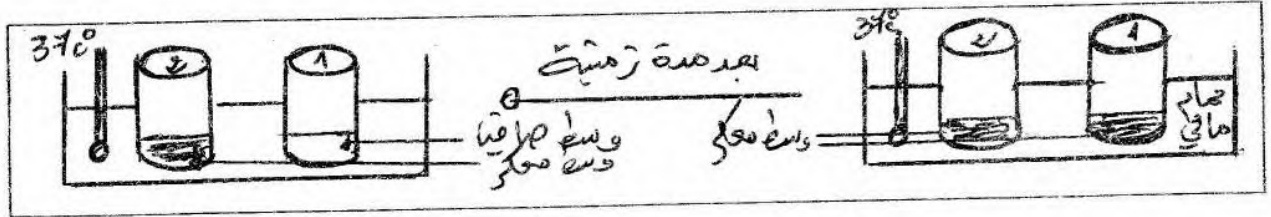 37c°
2
1
حمام مائي
وسط معكر
بعد مدة زمنية
37c°
2
1
وسط صافي
وسط معكر